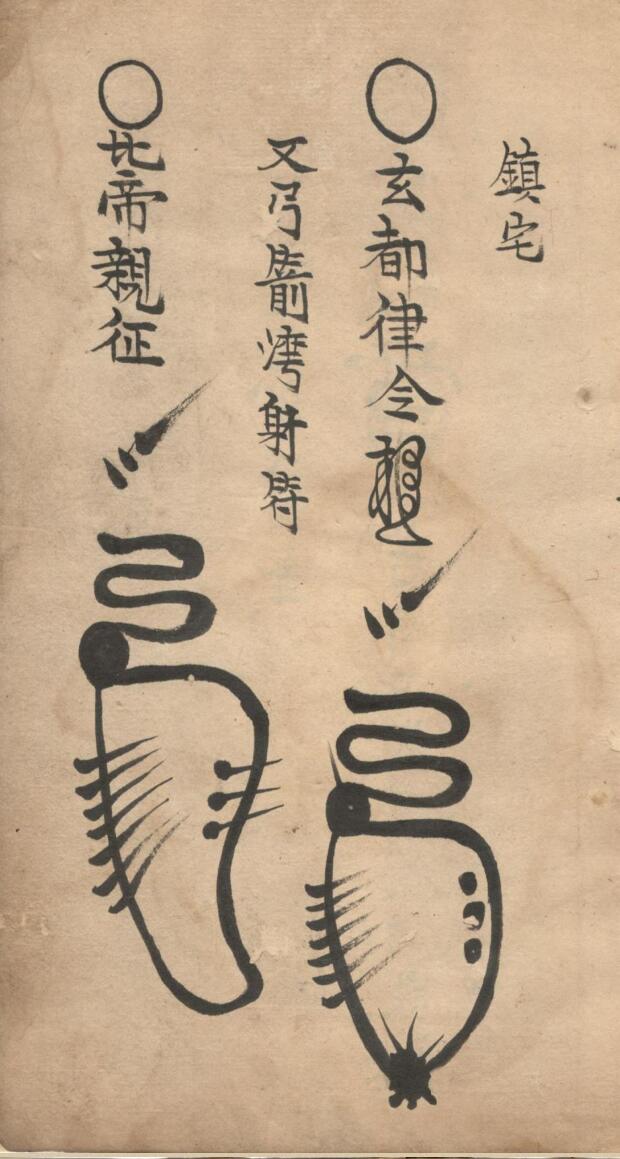 鎮宅
〇玄都律令
又弓箭湾射符
〇北帝親征